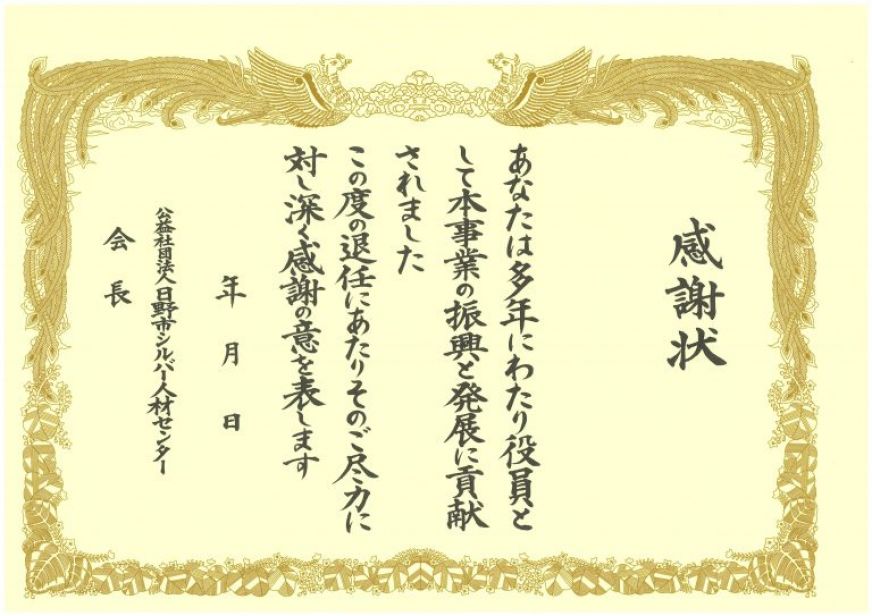 感謝状
あなたは多年にわたり役員と
して本事業の振興と発展に貢献
されました
この度の退任にあたりそのご尽力に
対し深く感謝の意を表します
年月日
公益社団法人日野市シルバー人材センター
会長